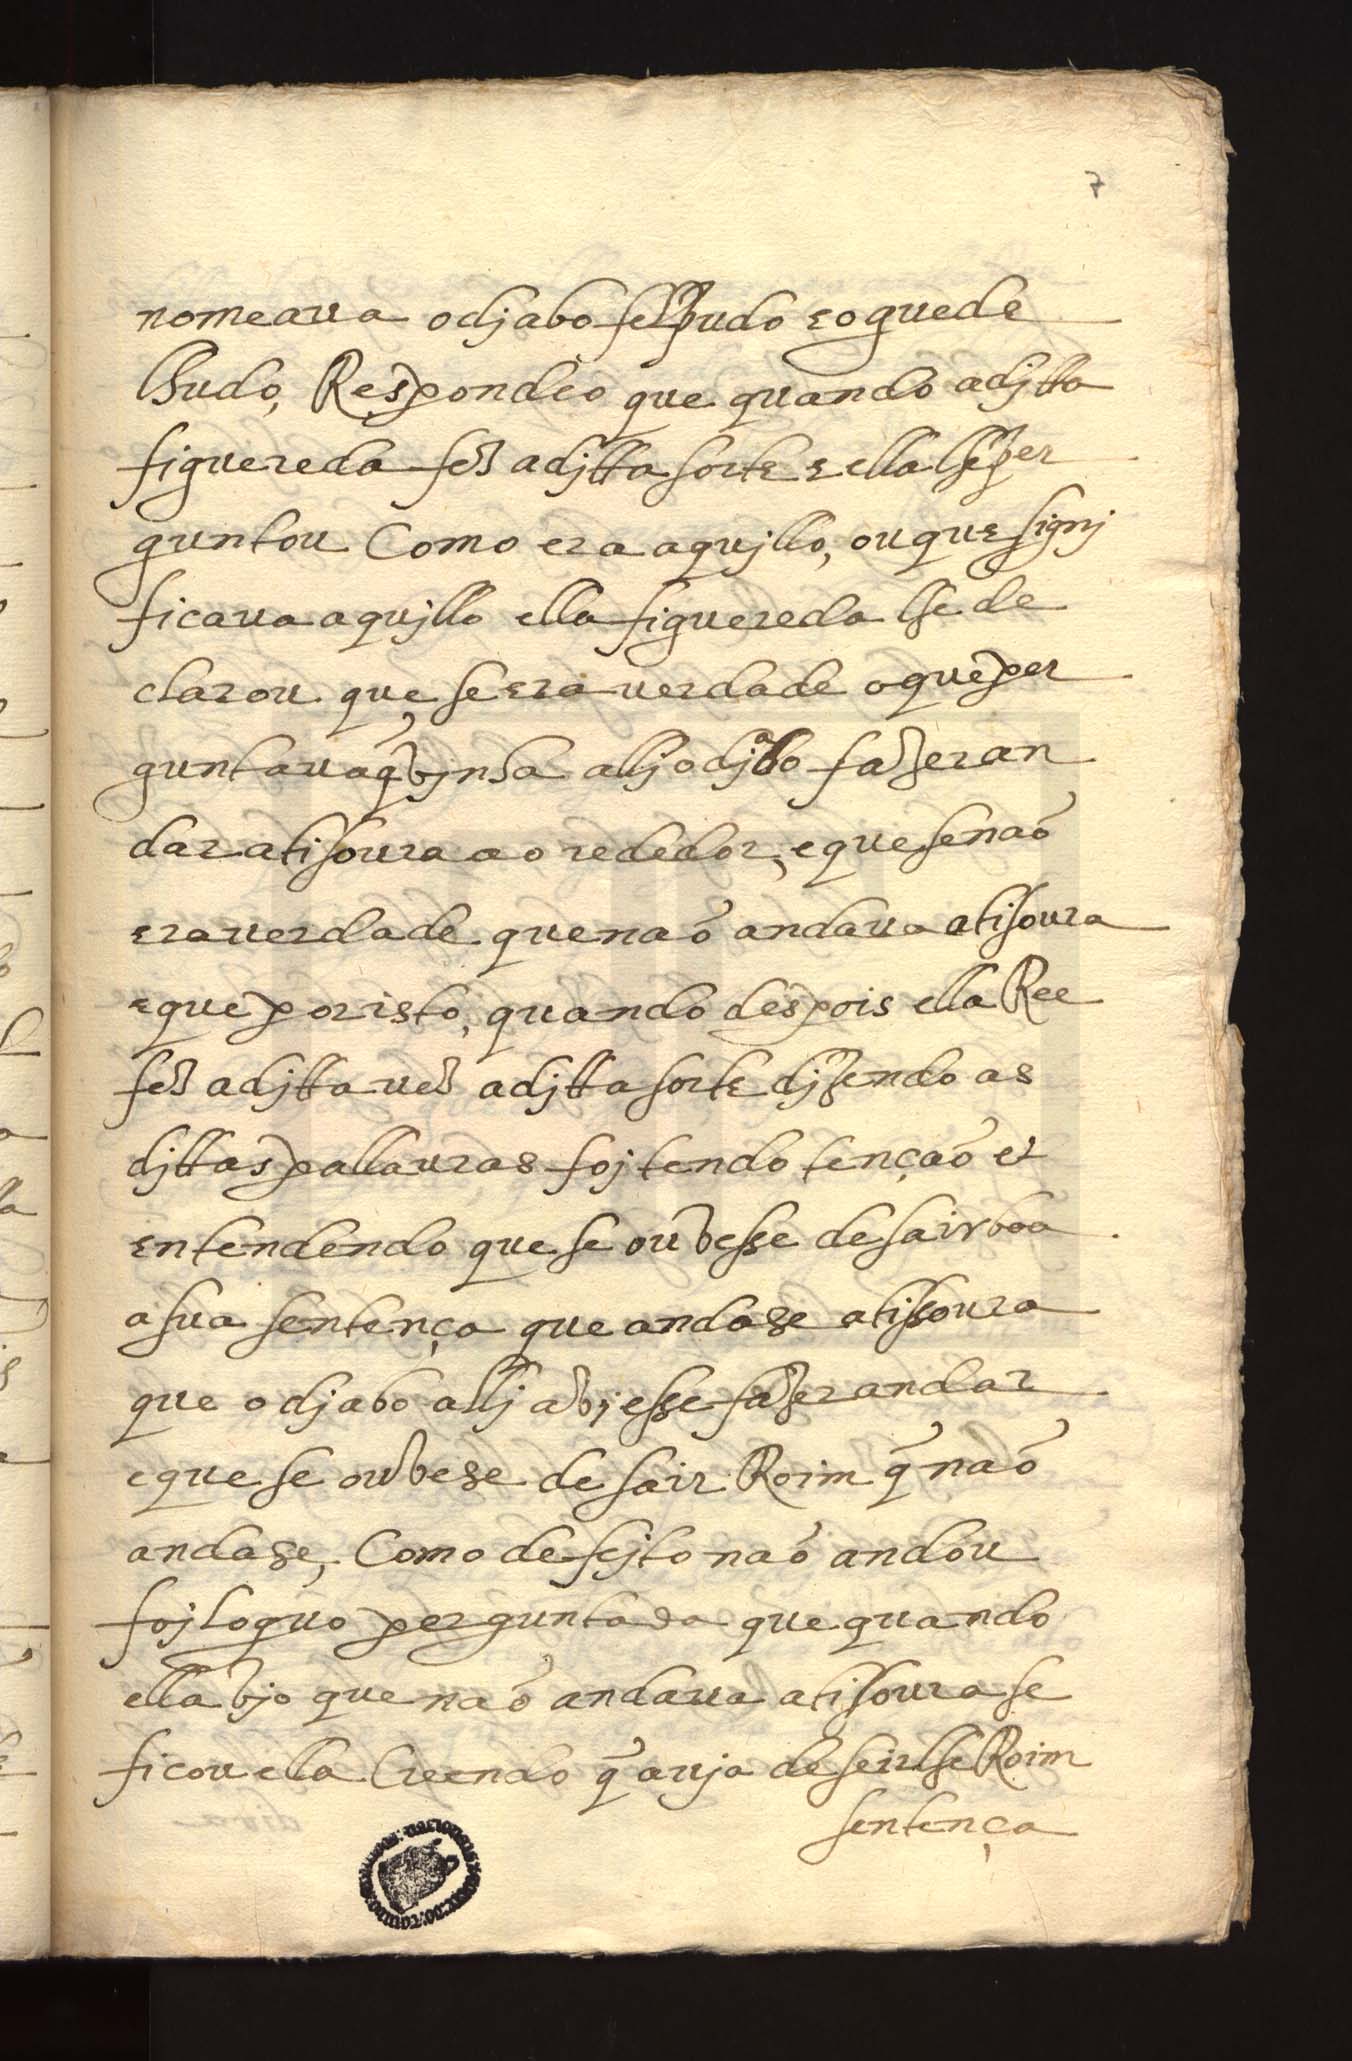 7
nomeaua o djabo felpudo e o guede
lhudo, Respondeo que quando a djtta
figuereda fes a djtta sorte e ella lhe per
guntou Como era aquyllo, ou que signj
ficaua aquyllo ella figuereda lhe de
clarou que se era uerdade o que per
guntaua q̃ vjnha allj o djabo fazer an
dar a tisoura ao rededor, e que se naõ
era uerdade que naõ andaua a tisoura
e que por isto, quando despois ella Ree
fes a djtta ues a djtta sorte djzendo as
djttas pallauras foj tendo tençaõ et
entendendo que se ouvesse de sair boa
a sua sentença que andase a tissoura
que o djabo allj a vjesse fazer andar
e que se ouvese de sair Roim q̃ naõ
andase, Como de fejto naõ andou
foj loguo perguntada que quando
ella vjo que naõ andaua a tisoura se
ficou ella Creendo q̃ auja de seirlhe Roim
sentença